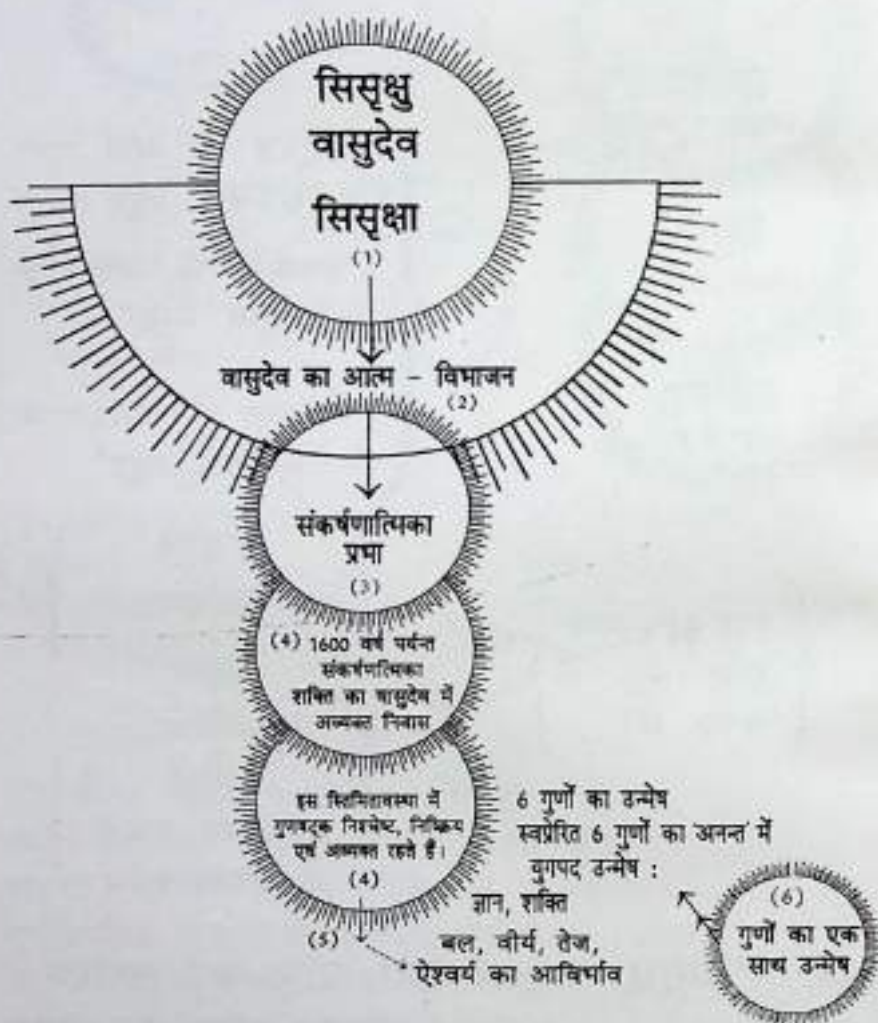 सिसृक्षु
वासुदेव
सिसृक्षा
(1)
वासुदेव का आत्म – विभाजन
(2)
संकर्षणात्मिका
प्रभा
(3)
(4) 1600 वर्ष पर्यन्त
संकर्षणत्मिका
शक्ति का वासुदेव में
अव्यक्त निवास
इस स्तिमितावस्था में
गुणषट्क निश्चेष्ट, निष्क्रिय
एवं अव्यक्त रहते हैं।
(4)
(5)
6 गुणों का उन्मेष
स्वप्रेरित 6 गुणों का अनन्त में
युगपद उन्मेष :
ज्ञान, शक्ति
बल, वीर्य, तेज,
ऐश्वर्य का आविर्भाव
(6)
गुणों का एक
साथ उन्मेष